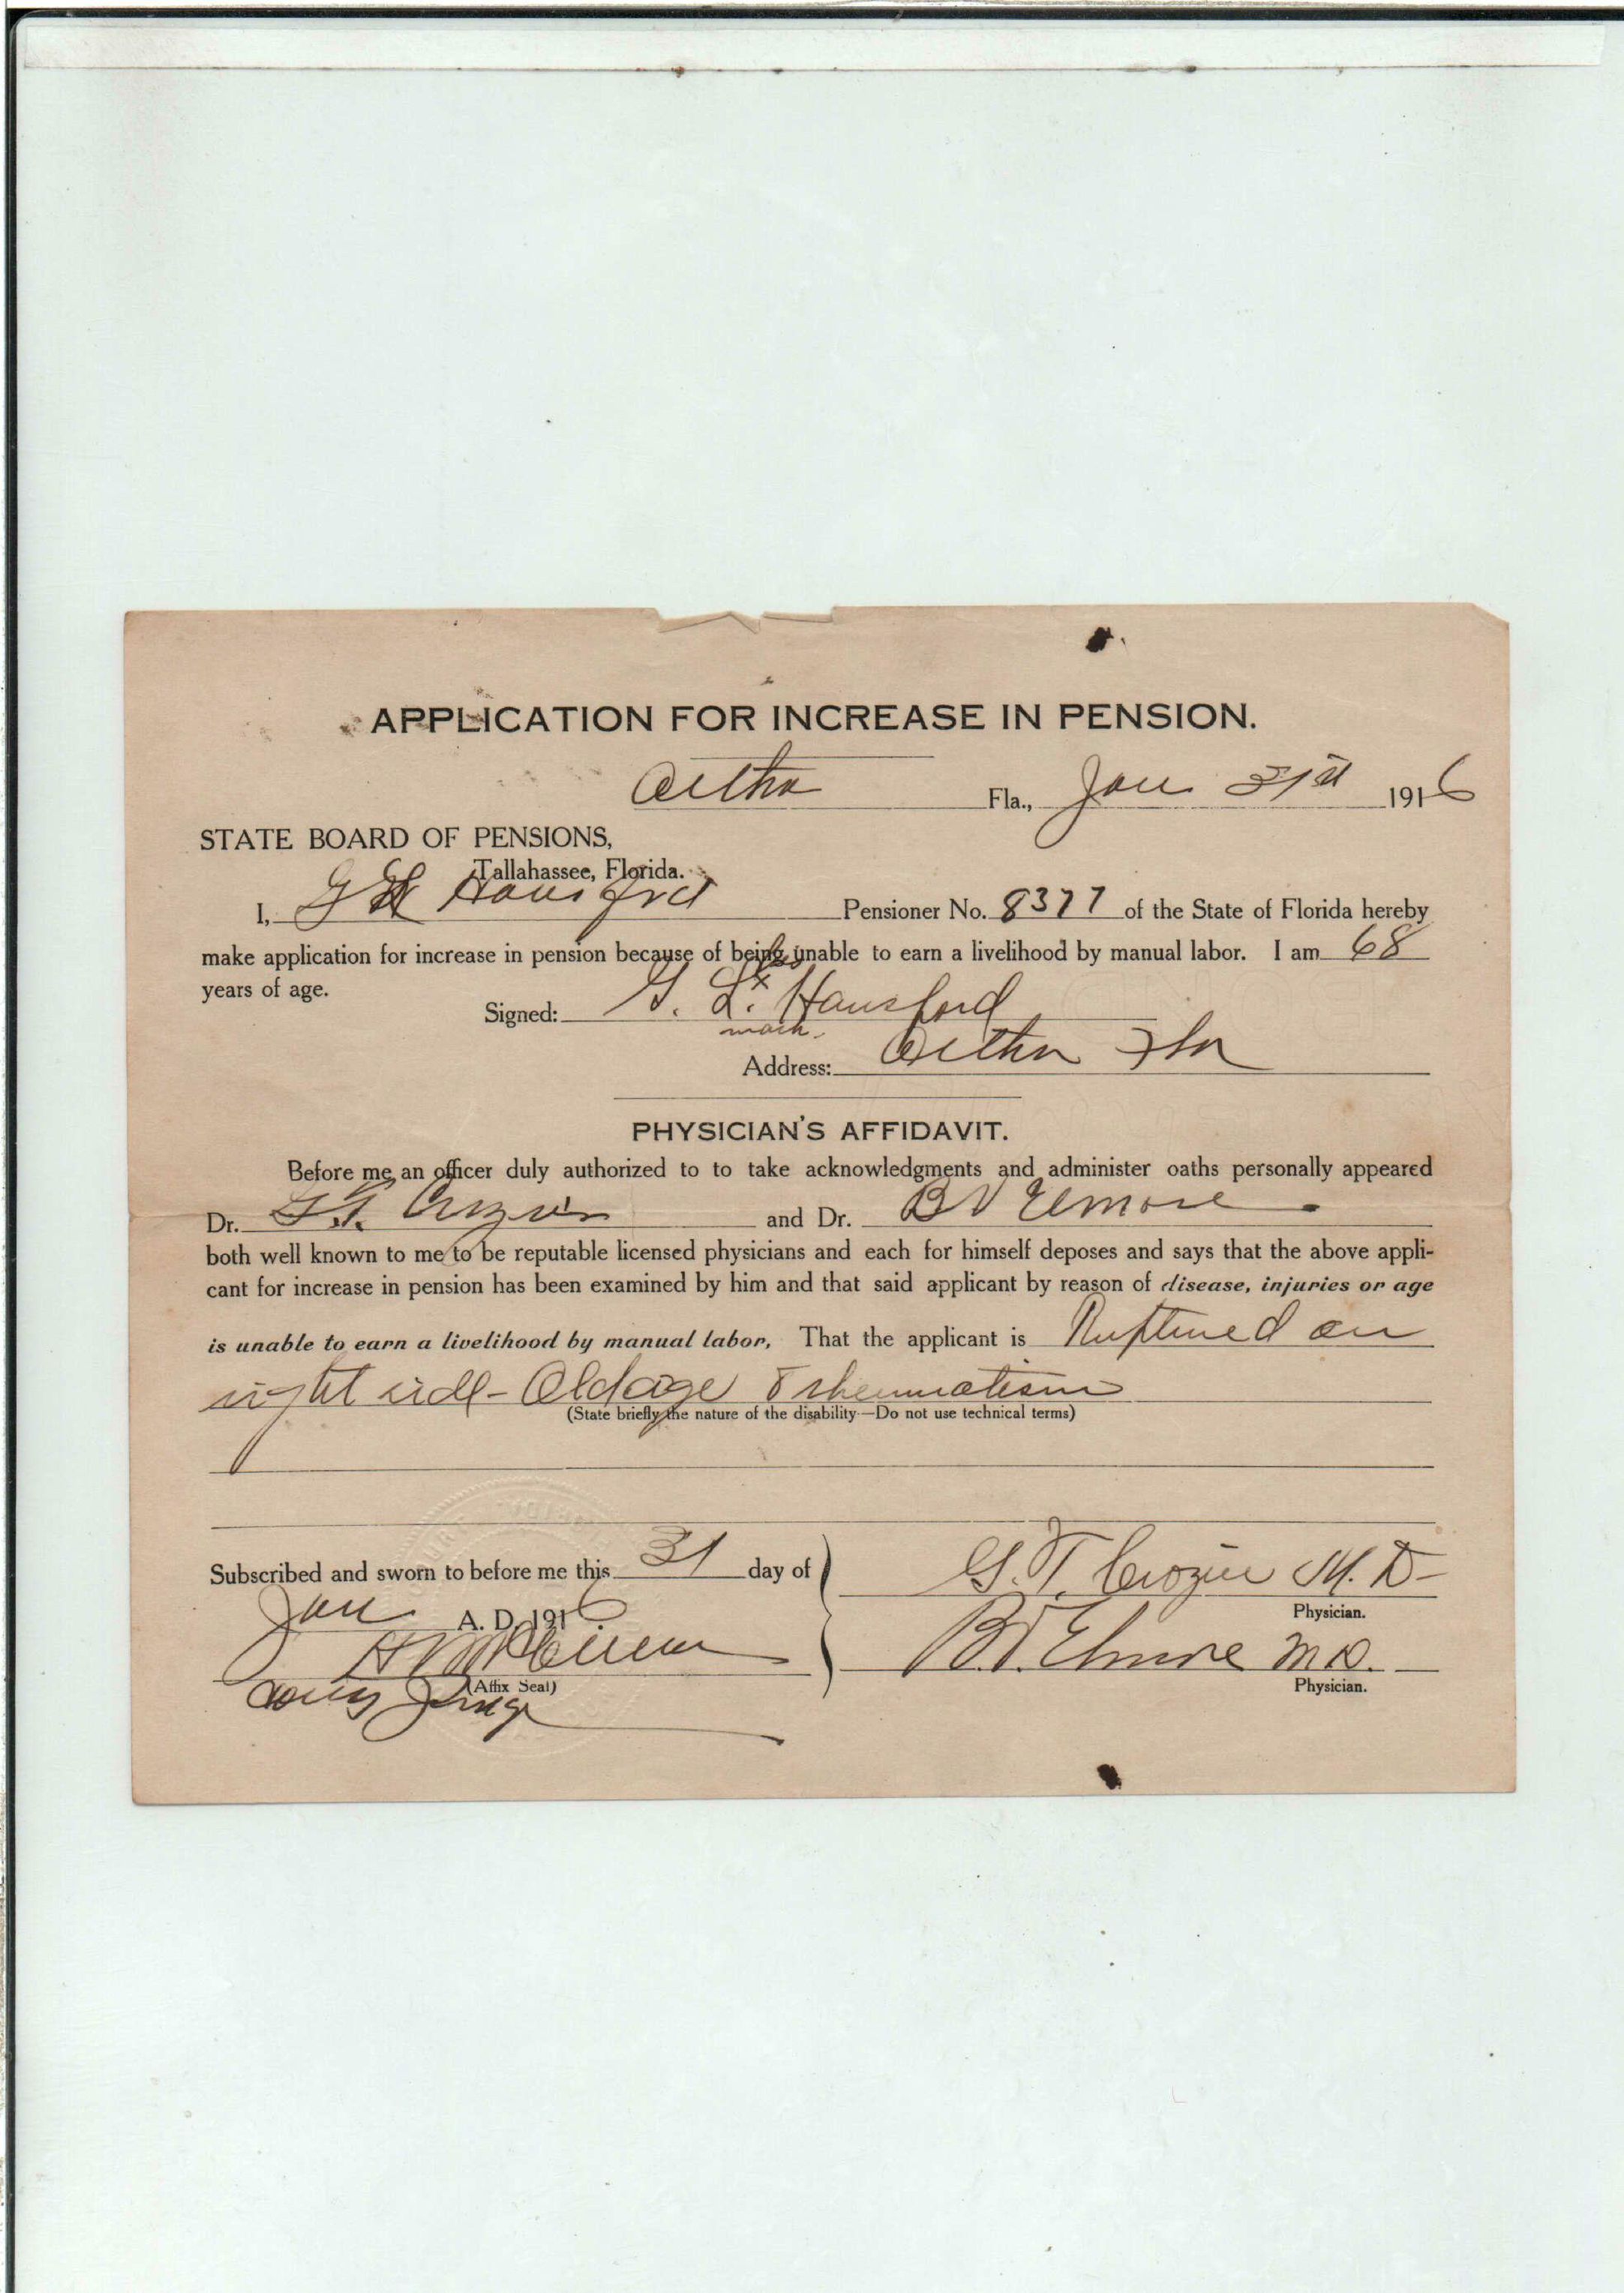 APPLICATION FOR INCREASE IN PENSION.
Fla., Jan 31st 1916
STATE BOARD OF PENSIONS,
Tallahassee, Florida.
I, G Hansford Pensioner No. 8377 of the State of Florida hereby
make application for increase in pension because of being unable to earn a livelihood by manual labor. I am 68
years of age.
his
Signed: G. L. x Hansford
mark.
Address: Altha Fla
PHYSICIAN'S AFFIDAVIT.
Before me, an officer duly authorized to to take acknowledgments and administer oaths personally appeared
Dr. G.T. Crozier and Dr. B V Elmore
both well known to me to be reputable licensed physicians and each for himself deposes and says that the above appli-
cant for increase in pension has been examined by him and that said applicant by reason of disease, injuries or age
is unable to earn a livelihood by manual labor, That the applicant is Ruptured on
right side - Old age & rheumatism
(State briefly the nature of the disability—Do not use technical terms)
Subscribed and sworn to before me this 31 day of
Jan A. D. 1916
G. T. Crozier M. D-
Physician.
B.V. Elmore M D.
Physician.
(Affix Seal)
County Judge